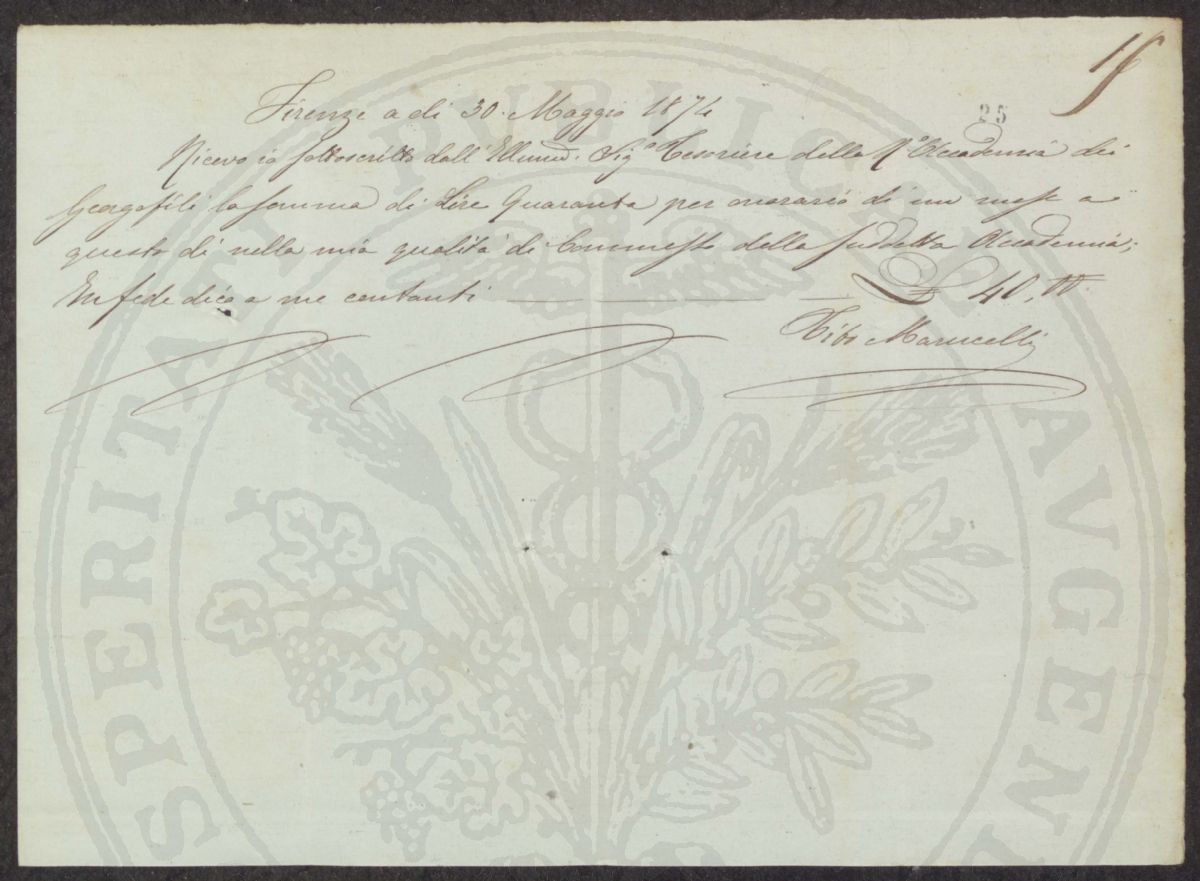 15
25
Firenze a di 30. Maggio 1874
Ricevo io sottoscritto dall' Sig.e Tesoriere della R.a Accademia dei
Georgofili la somma di Lire Quaranta per onorario di un mese a
questo di nella mia qualità di Commesso della suddetta Accademia;
In fede dico a me contanti — — — £ 40,
Tito Marucelli
PROSPERITATI PUBLICAE AUGENDAE